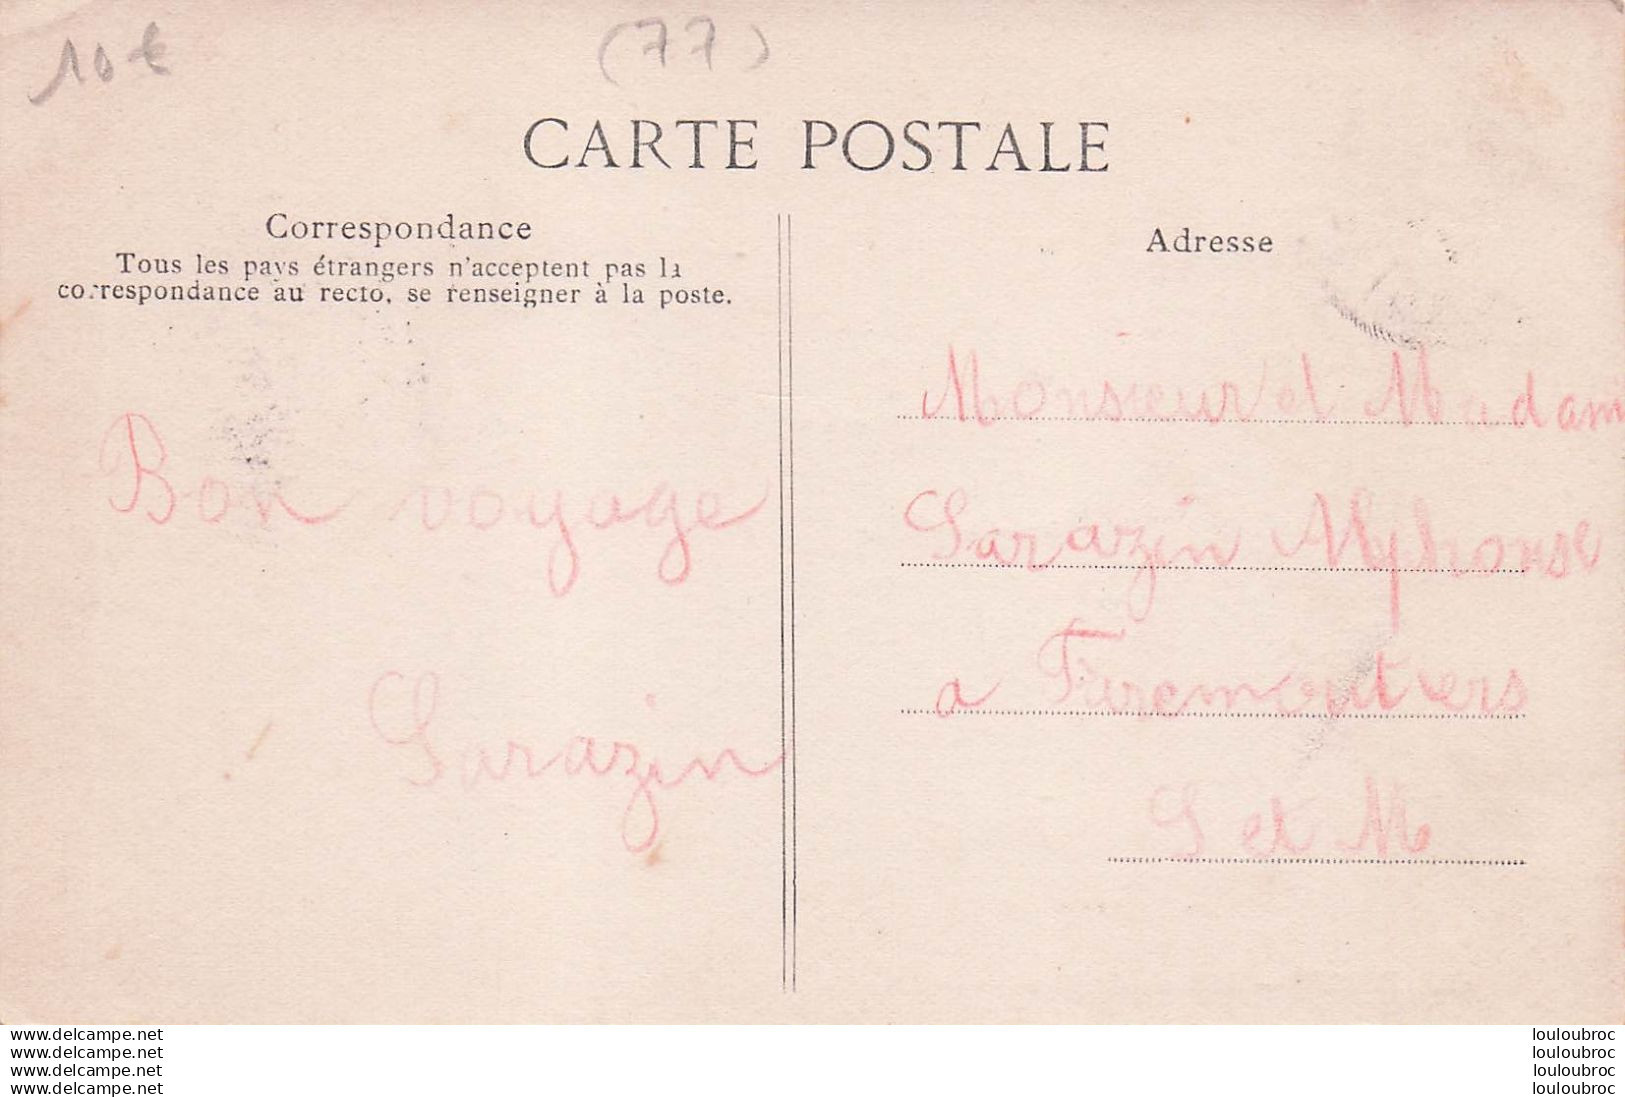 10 €
(77)
CARTE POSTALE
Correspondance
Tous les pays étrangers n'acceptent pas la
correspondance au recto, se renseigner à la poste.
Bon voyage
Sarazin
Adresse
Monsieur et Madam
Sarazin Alphonse
a Faremoutiers
S et M
www.delcampe.net
www.delcampe.net
www.delcampe.net
www.delcampe.net
louloubroc
louloubroc
louloubroc
louloubroc